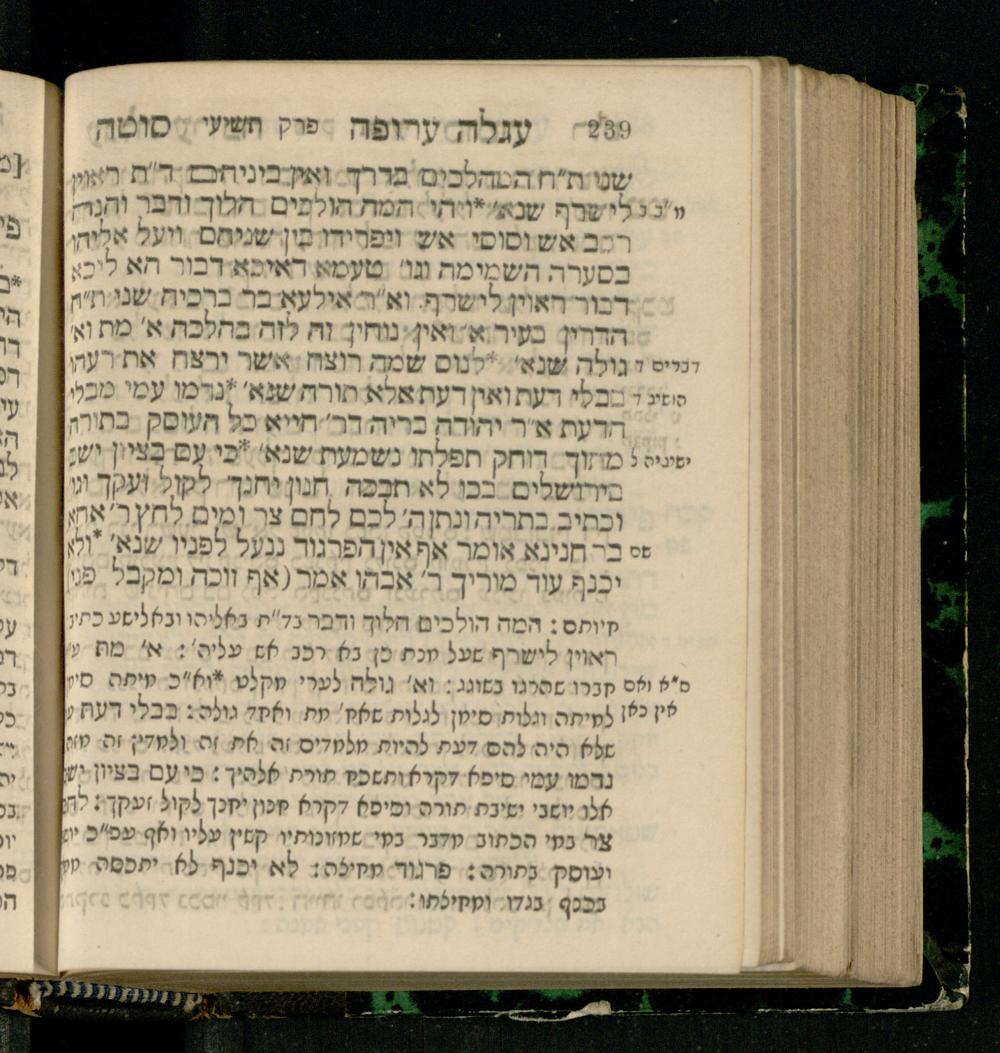 239 עגלה ערופה פרק תשיעי סוטה
שני ת״ח המהלכים בדרך ואין ביניהם ד״ת ראוין
מ״ב ב לישרף שנא׳ *ויהי המה הולכים הלוך ודבר והנה
רכב אש וסוסי אש ויפרידו בין שניהם ויעל אליהו
בסערה השמימה וגו׳ טעמא דאיכא דבור הא ליכא
דבור ראוין לישרף. וא״ר אילעא בר ברכיה שני ת״ח
הדרין בעיר א׳ ואין נוחין זה לזה בהלכה א׳ מת וא׳
דברים ד גולה שנא׳ *לנוס שמה רוצח אשר ירצח את רעהו
הושיע ד בבלי דעת ואין דעת אלא תורה שנא׳ *נדמו עמי מבלי
הדעת א״ר יהודה בריה דר׳ חייא כל העוסק בתורה
ישעיה ל מתוך דוחק תפלתו נשמעת שנא׳ *כי עם בציון ישב
בירושלים בכו לא תבכה חנון יחנך לקול זעקך וגו׳
וכתיב בתריה ונתן ה׳ לכם לחם צר ומים לחץ ר׳ אחא
שם בר חנינא אומר אף אין הפרגוד ננעל לפניו שנא׳ *ולא
יכנף עוד מוריך ר׳ אבהו אמר (אף זוכה ומקבל פני
חיותם: המה הולכים הלוך ודבר בד״ת באליהו ובאלישע כתיב
ראוין לישרף שעל מנת כן בא רכב אש עליה׳: א׳ מת
ס״א ואם חברו שהרגו בשוגג: וא׳ גולה לערי מקלט *וא״כ מיתה סימן
אין כאן למיתה וגלות סימן לגלות שאח׳ מת ואחד גולה: בבלי דעת
שלא היה להם דעת להיות מלמדים זה את זה ולמדין זה מזה
נדמו עמי סיפא דקרא ותשכח תורת אלהיך: כי עם בציון ישב
אלו יושבי ישיבת תורה וסיפא דקרא חנון יחנך לקול זעקך: לחם
צר במי הכתוב מדבר במי שמזונותיו קשין עליו ואף עפ״כ
ועוסק בתורה: פרגוד מחיצה: לא יכנף לא יתכסה
בכנף בגדו ומחיצתו: